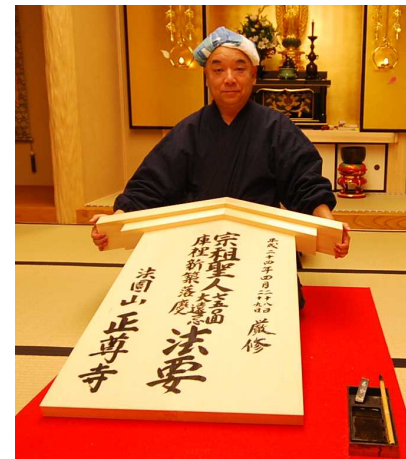 平成二十四年四月 厳修
宗祖聖人七五〇回大遠忌
庫裡新築落慶
法要
法圓山 正尊寺